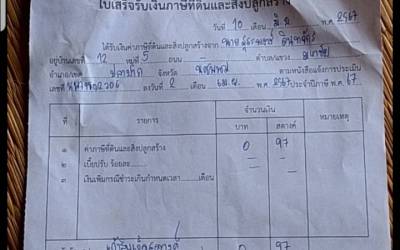 ใบเสร็จรับเงินภาษีที่ดินและสิ่งปลูกสร้าง
วันที่ 10 เดือน มิ.ย. พ.ศ. 2567
ได้รับเงินค่าภาษีที่ดินและสิ่งปลูกสร้างจาก
อยู่บ้านเลขที่ 12 หมู่ที่ 5 ถนน ตำบล/แขวง
อำเภอ/เขต ปลาปาก จังหวัด นครพนม ตามหนังสือแจ้งการประเมิน
เลขที่ ลงวันที่ 2 เดือน เม.ย. พ.ศ. 2567 ประจำปีภาษี พ.ศ. 67
ที่ รายการ จำนวนเงิน หมายเหตุ
บาท สตางค์
๑ ค่าภาษีที่ดินและสิ่งปลูกสร้าง 0 97
๒ เบี้ยปรับ ร้อยละ - -
๓ เงินเพิ่มกรณีชำระเกินกำหนดเวลา เดือน
0 97